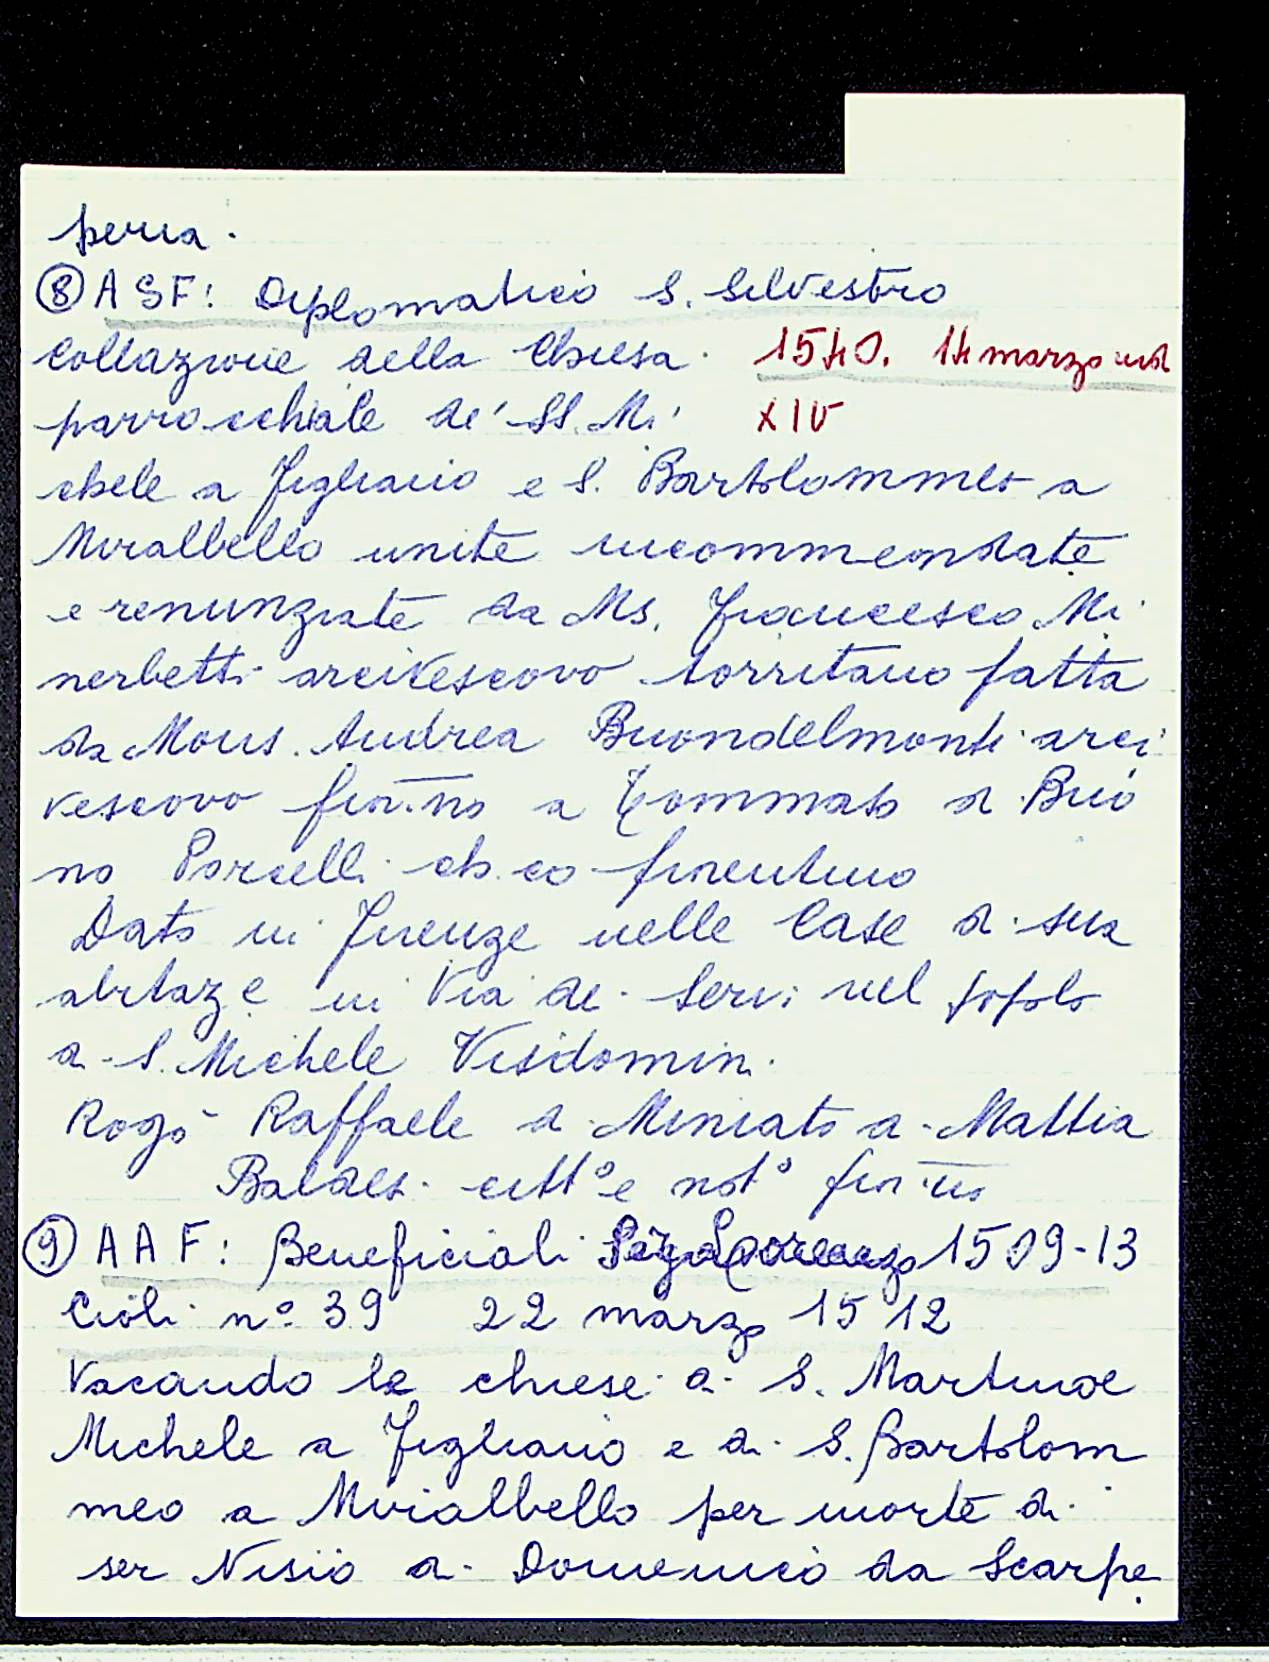 peria.
⑧ ASF: Diplomatico S. Silvestro
Collazione della Chiesa 1540. 14 marzo ind
parrocchiale de' SS. Mi XIV
chele a Figliano e S. Bartolommeo a
Miralbello unite incommendate
e renunziate da Ms. Francesco Mi
nerbetti arcivescovo torritano fatta
da Mons. Andrea Buondelmonti arci
vescovo fior.no a Tommaso di Buo
no Porcelli ch.co fiorentino
Dato in Firenze nelle Case di sua
abitaz.e in Via dei Servi nel popolo
di S. Michele Visdomini
Rogò Raffaele di Miniato di Mattia
Baldesi citt° e not° fior.no
⑨ AAF: Beneficiali 1509-13
Cioli n° 39 22 marzo 1512
Vacando le chiese di S. Martino e
Michele a Figliano e di S. Bartolom
meo a Mirialbello per morte di
ser Nisio di Domenico da Scarpe